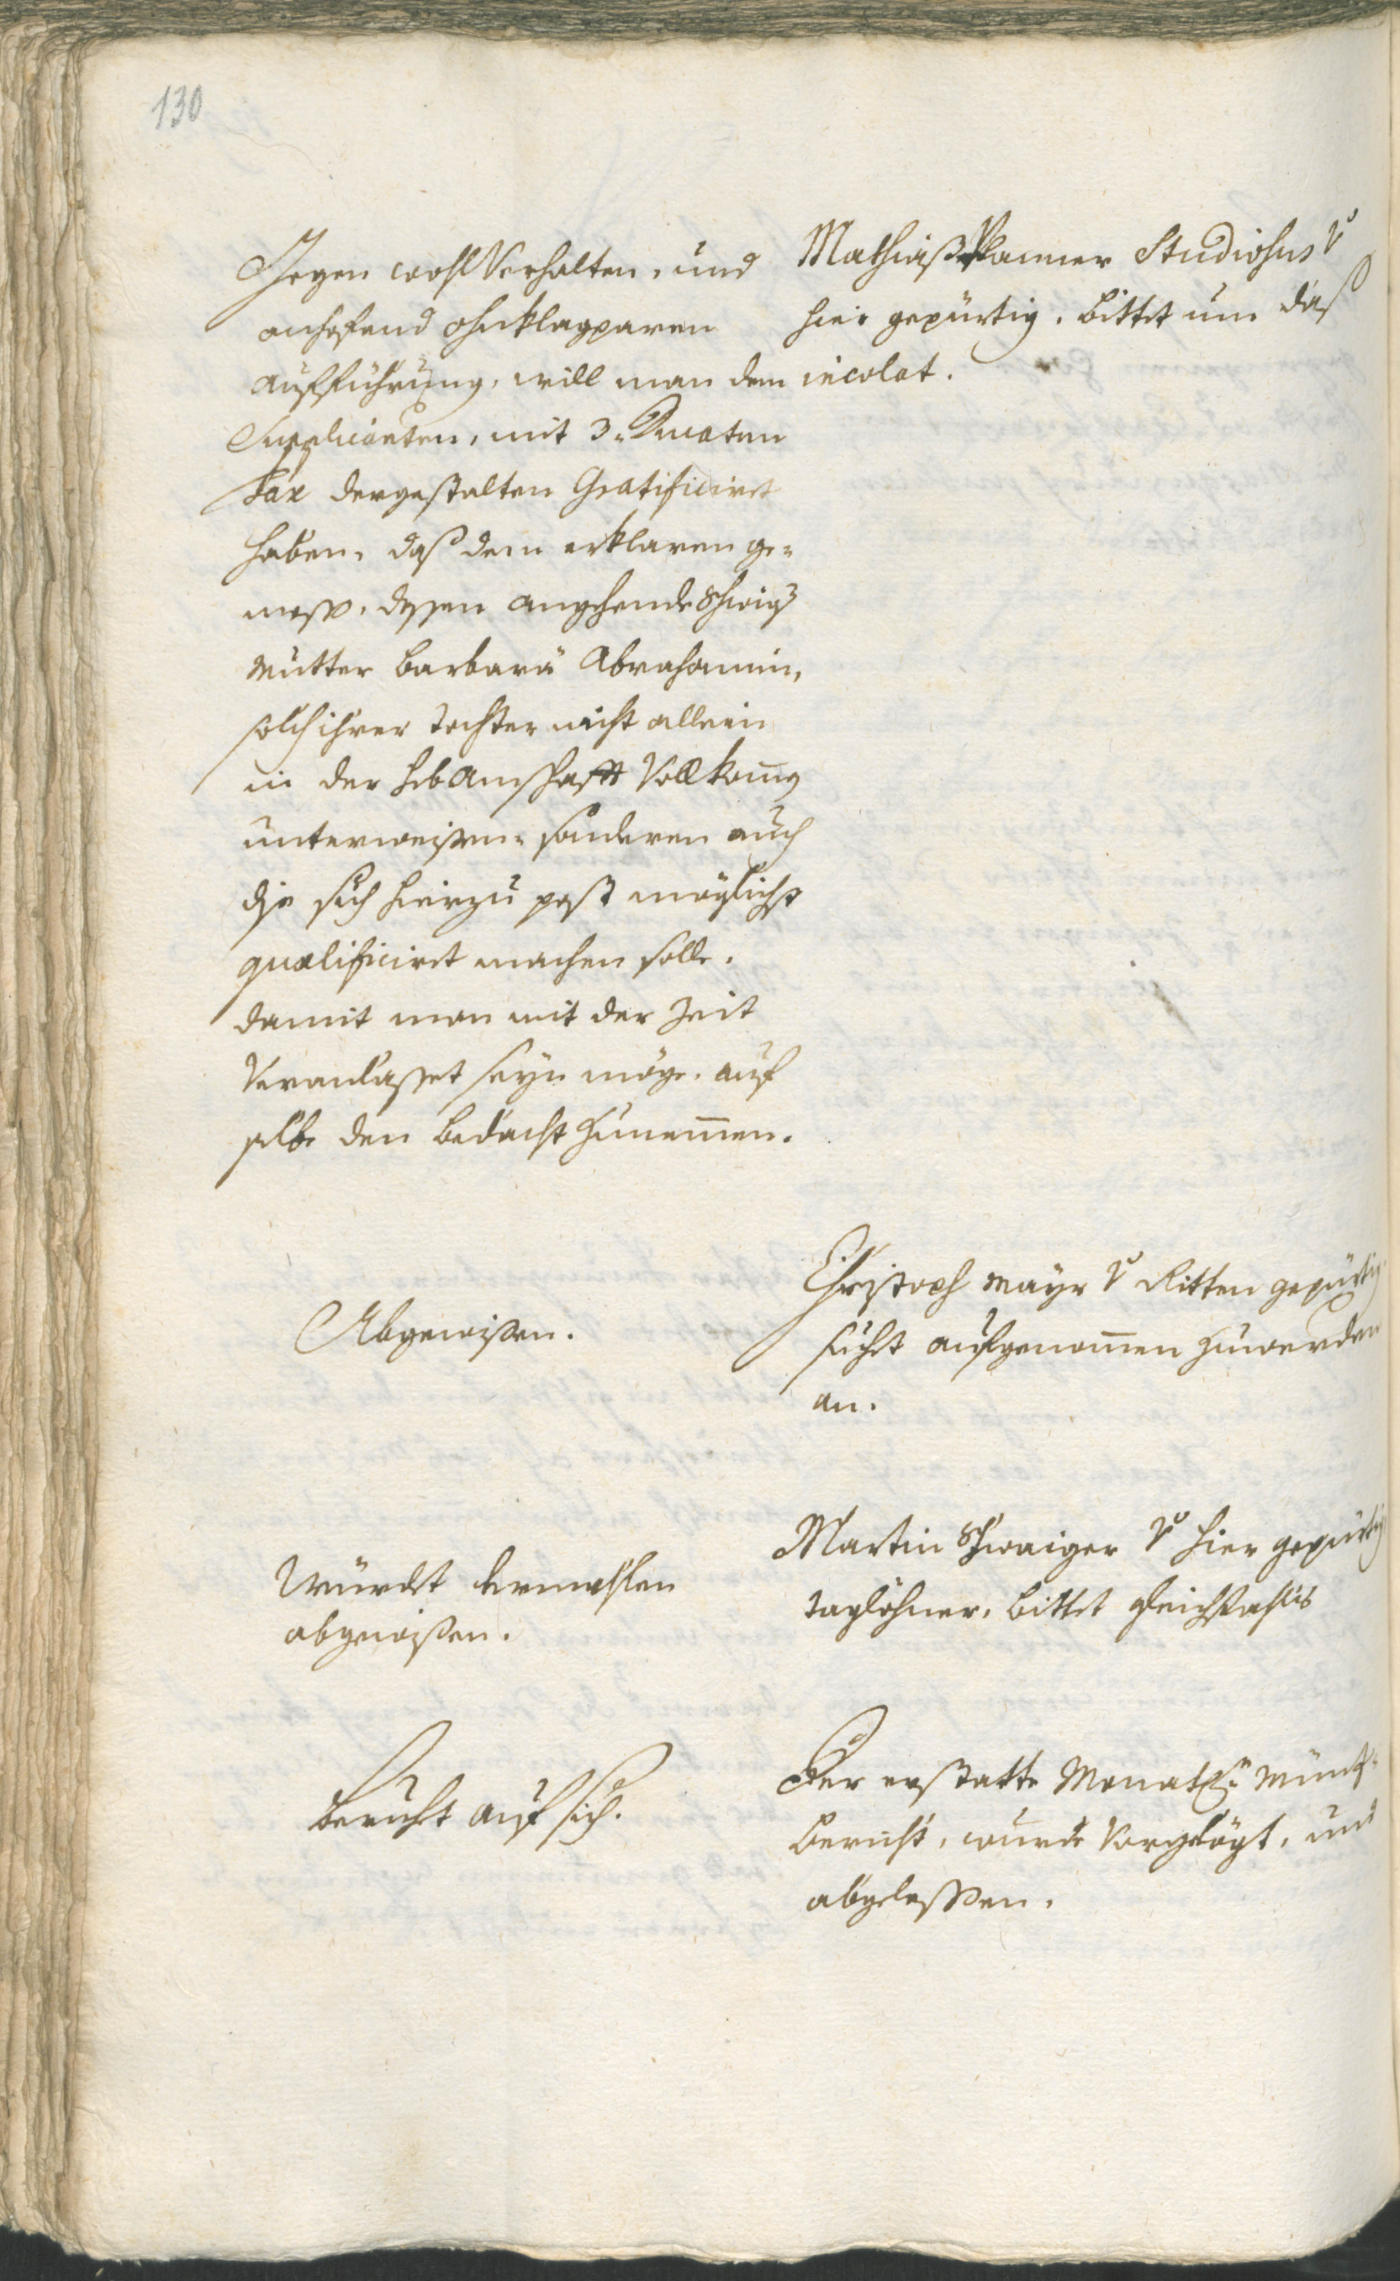 130
Gegen wohl Verhalten, und
anhofend ohnklagparen
aufführung, will man dem
Supplicanten, mit 3. Ducaten
Tax dergestalten Gratificiret
haben, daß dem erklaren ge-
mess, dessen angehende Schwig
Mutter Barbara Abrahamin,
solch ihrer Tochter nicht allein
in der hebamschafft Vollkomg
unterweissen, sonderen auch
dise sich hierzu pest möglichst
qualificiret machen solle,
damit man mit der Zeit
Veranlasset seyn möge, auf
selbe den bedacht zunemmen.
Mathias Planner Studiosus V
hier gepürtig, bittet um daß
incolat.
Abgewissen.
Christoph Mayr V Ritten gepürtig
sucht aufgenommen zuwerden
an.
Würdet dermahlen
abgewissen.
Martin Schwaiger V hier gepürtig
Taglöhner, bittet gleichfahls
Beruhet auf sich.
Der erstatte Monatl: Münz-
Bericht, wurde Vorgelögt, und
abgelessen.